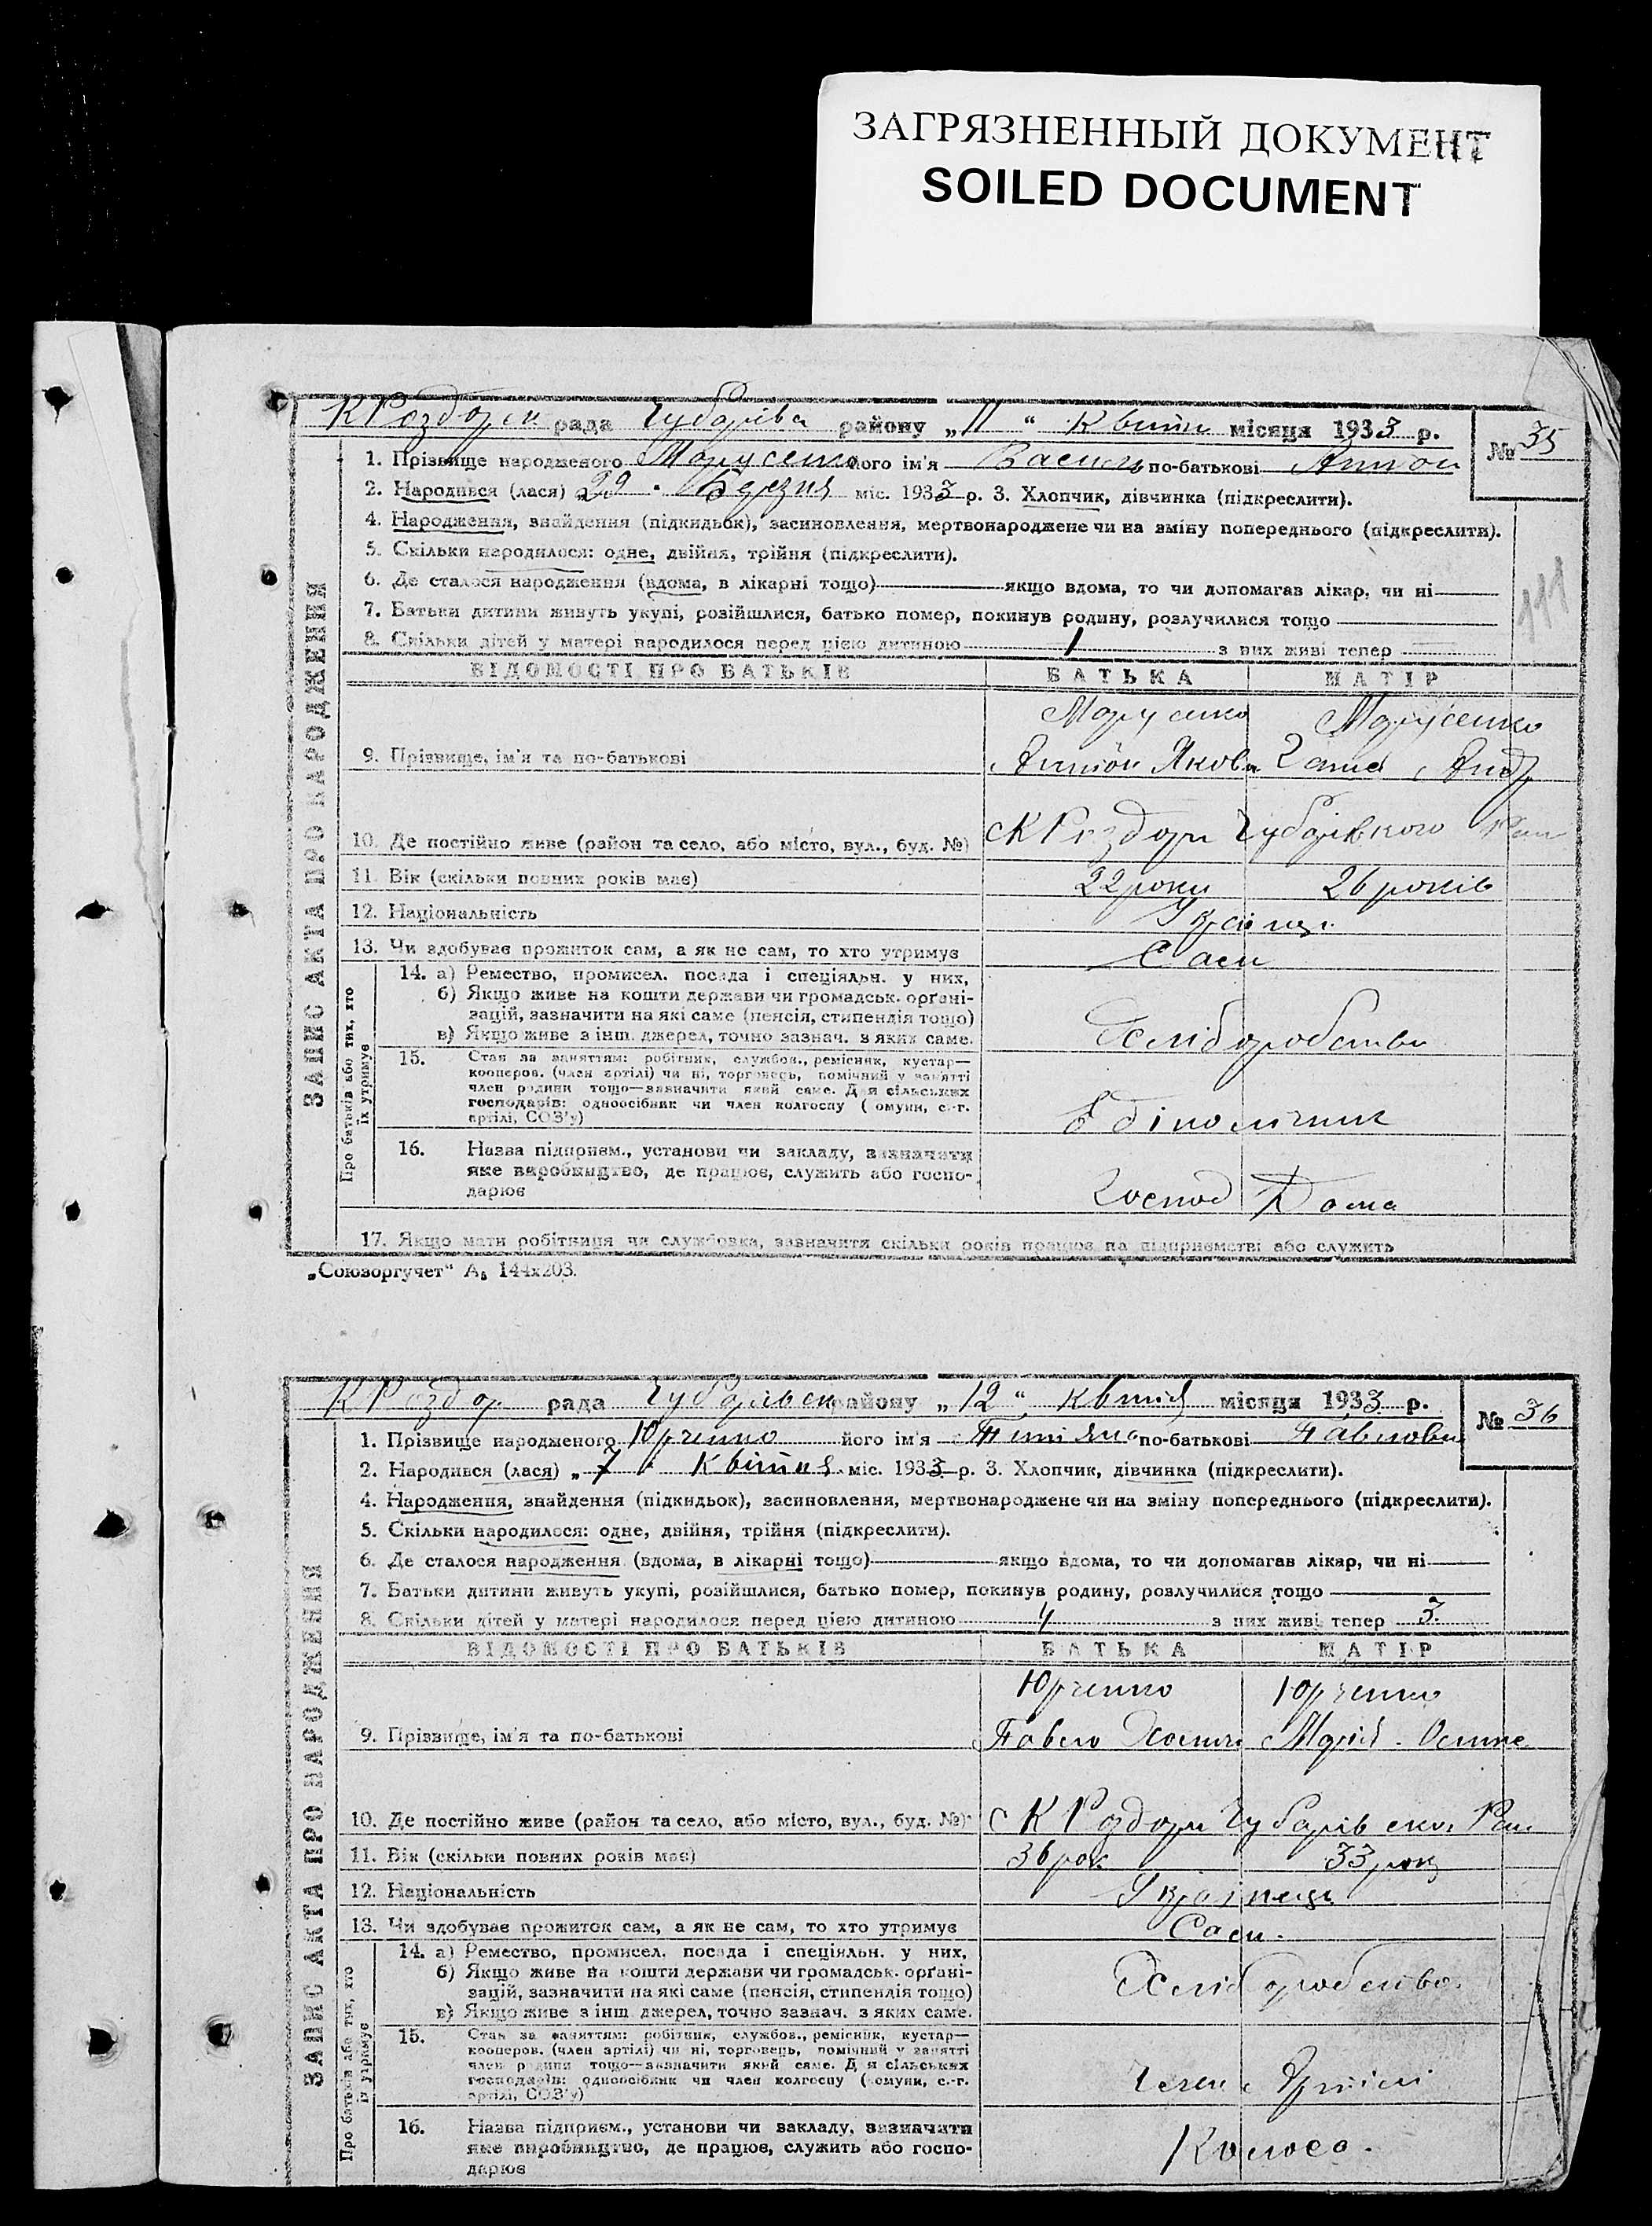 ЗАГРЯЗНЕННЫЙ ДОКУМЕНТ
SOILED DOCUMENT
К Роздорск. рада Чубарівск району „11“ Квітн місяця 1933 р.
№ 35
1. Прізвище народженого Марусенко його ім'я Василь по-батькові Антон
2. Народився (лася) 29 Березня міс. 1933 р. 3. Хлопчик, дівчинка (підкреслити).
4. Народження, знайдення (підкидьок), засиновлення, мертвонароджене чи на зміну попереднього (підкреслити).
5. Скільки народилося: одне, двійня, трійня (підкреслити).
6. Де сталося народження (вдома, в лікарні тощо) якщо вдома, то чи допомагав лікар, чи ні
7. Батьки дитини живуть укупі, розійшлися, батько помер, покинув родину, розлучилися тощо
8. Скільки дітей у матері народилося перед цією дитиною 1 з них живі тепер
ВІДОМОСТІ ПРО БАТЬКІВ БАТЬКА МАТІР
Марусенко Марусенко
9. Прізвище, ім'я та по-батькові Антон Яковл Ганна Андр
10. Де постійно живе (район та село, або місто, вул., буд. №) с К Роздори Чубарівского Рай
11. Вік (скільки повних років має) 22 роки 26 років
12. Національність Українці
13. Чи здобуває прожиток сам, а як не сам, то хто утримує Сами
14. а) Ремество, промисел. посада і спеціяльн. у них,
б) Якщо живе на кошти держави чи громадськ. орґані-
зацій, зазначити на які саме (пенсія, стипендія тощо)
в) Якщо живе з інш. джерел, точно зазнач. з яких саме.
Хліборобство
15. Стан за заняттям: робітник, службов., ремісник, кустар—
кооперов. (член артілі) чи ні, торговець, помічний у занятті
член родини тощо—зазначити який саме. Для сільських
господарів: одноосібник чи член колгоспу (комуни, с.-г.
артілі, СОЗ'у)
Едіноличник
16. Назва підприєм., установи чи закладу, зазначити
яке виробництво, де працює, служить або госпо-
дарює
Господ Дома
17. Якщо мати робітниця чи службовка, зазначити скільки років працює на підприємстві або служить
ЗАПИС АКТА ПРО НАРОДЖЕННЯ
Про батьків або тих, хто
їх утримує
„Союзоргучет“ А₅ 144х203.
К Роздор. рада Чубарівск району „12“ Квітня місяця 1933 р.
№ 36
1. Прізвище народженого Юрченко його ім'я Тетяна по-батькові Павловна
2. Народився (лася) „7“ Квітня міс. 1933 р. 3. Хлопчик, дівчинка (підкреслити).
4. Народження, знайдення (підкидьок), засиновлення, мертвонароджене чи на зміну попереднього (підкреслити).
5. Скільки народилося: одне, двійня, трійня (підкреслити).
6. Де сталося народження (вдома, в лікарні тощо) якщо вдома, то чи допомагав лікар, чи ні
7. Батьки дитини живуть укупі, розійшлися, батько помер, покинув родину, розлучилися тощо
8. Скільки дітей у матері народилося перед цією дитиною 4 з них живі тепер 3.
ВІДОМОСТІ ПРО БАТЬКІВ БАТЬКА МАТІР
Юрченко Юрченко
9. Прізвище, ім'я та по-батькові Павло Марія
10. Де постійно живе (район та село, або місто, вул., буд. №) с К Роздори Чубарівско. Рай.
11. Вік (скільки повних років має) 36 рок 33 рок
12. Національність Українец.
13. Чи здобуває прожиток сам, а як не сам, то хто утримує Сами.
14. а) Ремество, промисел. посада і спеціяльн. у них,
б) Якщо живе на кошти держави чи громадськ. орґані-
зацій, зазначити на які саме (пенсія, стипендія тощо)
в) Якщо живе з інш. джерел, точно зазнач. з яких саме.
Хліборобство.
15. Стан за заняттям: робітник, службов., ремісник, кустар—
кооперов. (член артілі) чи ні, торговець, помічний у занятті
член родини тощо—зазначити який саме. Для сільських
господарів: одноосібник чи член колгоспу (комуни, с.-г.
артілі, СОЗ'у)
Член Артілі
16. Назва підприєм., установи чи закладу, зазначити
яке виробництво, де працює, служить або госпо-
дарює
Колос.
ЗАПИС АКТА ПРО НАРОДЖЕННЯ
Про батьків або тих, хто
їх утримує